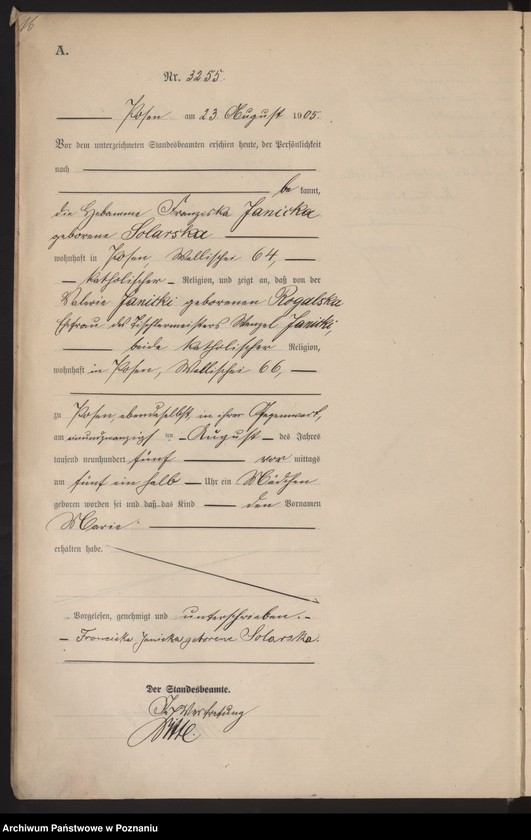 16
A.
Nr. 3255.
Posen am 23 August 1905.
Vor dem unterzeichneten Standesbeamten erschien heute, der Persönlichkeit
nach
be kannt,
die Hebamme Franziska Janicka
geborene Solarska
wohnhaft in Posen, Wallischei 64,
katholischer Religion, und zeigte an, daß von der
Valerie Janicki geborenen Rogalska
Ehefrau des Tischlermeisters Wenzel Janicki,
beide katholischer Religion,
wohnhaft in Posen, Wallischei 66,
zu Posen, ebendaselbst, in ihrer Gegenwart,
am ten August des Jahres
tausend neunhundert fünf vor mittags
um fünf ein halb Uhr ein Mädchen
geboren worden sei und daß das Kind den Vornamen
Marie
erhalten habe.
Vorgelesen, genehmigt und unterschrieben.
Franciska Janicka geborene Solarska.
Der Standesbeamte.
In Vertretung
Archiwum Państwowe w Poznaniu